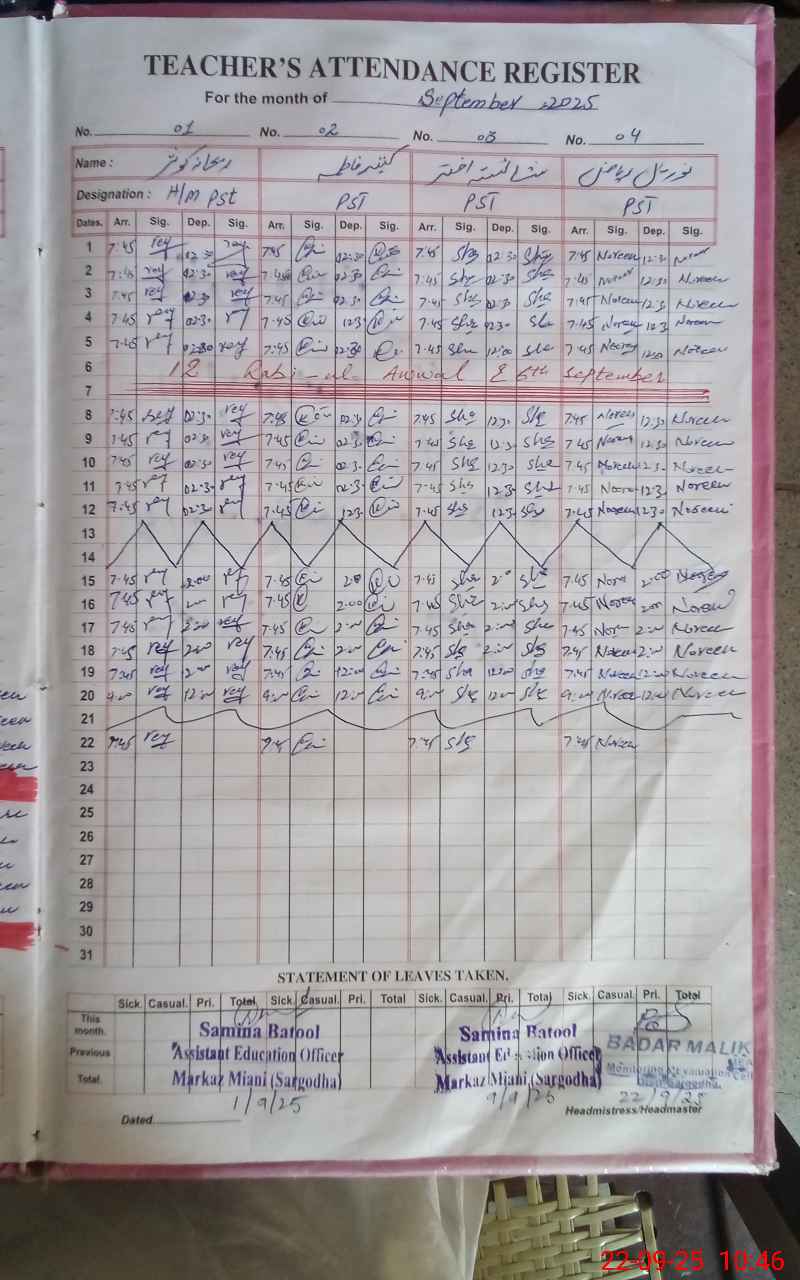 TEACHER'S ATTENDANCE REGISTER
For the month of September 2025
No. 01 No. 02 No. 03 No. 04
Name : ریحانہ کوثر کنیز فاطمہ شائستہ اختر نورین ریاض
Designation : H/m PST PST PST PST
Dates. Arr. Sig. Dep. Sig. Arr. Sig. Dep. Sig. Arr. Sig. Dep. Sig. Arr. Sig. Dep. Sig.
1 7:45 rey 02:30 rey 7:45 02:30 7:45 Sha 02:30 Sha 7:45 Noreen 12:30
2 7:45 rey 02:30 rey 7:45 02:30 7:45 Sha 02:30 Sha 7:45 12:30 Noreen
3 7:45 rey 02:30 rey 7:45 02:30 7:45 Sha 02:30 Sha 7:45 Noreen 12:3 Noreen
4 7:45 rey 02:30 rey 7:45 12:3 7:45 Sha 02:30 Sha 7:45 Noreen 12:3 Noreen
5 7:45 rey 02:30 rey 7:45 12:30 7:45 Sha 12:00 Sha 7:45 Noreen 12:00 Noreen
6 12 Rabi-ul Awwal & 6th September
7
8 7:45 rey 02:30 rey 7:45 02:30 7:45 Sha 12:30 Sha 7:45 Noreen 12:30 Noreen
9 7:45 rey 02:30 rey 7:45 02:30 7:45 Sha 12:3 Sha 7:45 Noreen 12:30 Noreen
10 7:45 rey 02:30 rey 7:45 02:3 7:45 Sha 12:30 Sha 7:45 Noreen 12:3 Noreen
11 7:45 rey 02:30 rey 7:45 02:3 7:45 Sha 12:3 Sha 7:45 Noreen 12:3 Noreen
12 7:45 rey 02:30 rey 7:45 12:3 7:45 Sha 12:3 Sha 7:45 Noreen 12:30 Noreen
13
14
15 7:45 rey 2:00 rey 7:45 2:00 7:45 Sha 2:00 Sha 7:45 Noreen 2:00 Noreen
16 7:45 rey 2:00 rey 7:45 2:00 7:45 Sha 2:00 Sha 7:45 Noreen 2:00 Noreen
17 7:45 rey 2:00 rey 7:45 2:00 7:45 Sha 2:00 Sha 7:45 Noreen 2:00 Noreen
18 7:45 rey 2:00 rey 7:45 2:00 7:45 Sha 2:00 Sha 7:45 Noreen 2:00 Noreen
19 7:45 rey 12:00 rey 7:45 12:00 7:45 Sha 12:00 Sha 7:45 Noreen 12:00 Noreen
20 9:00 rey 12:00 rey 9:00 12:00 9:00 Sha 12:00 Sha 9:00 Noreen 12:00 Noreen
21
22 7:45 rey 7:45 7:45 Sha 7:45 Noreen
23
24
25
26
27
28
29
30
31
STATEMENT OF LEAVES TAKEN.
Sick. Casual. Pri. Total Sick. Casual. Pri. Total Sick. Casual. Pri. Total Sick. Casual. Pri. Total
This month.
Previous
Total.
Samina Batool
Assistant Education Officer
Markaz Miani (Sargodha)
1/9/25
Samina Batool
Assistant Education Officer
Markaz Miani (Sargodha)
9/9/25
BADAR MALIK
Monitoring & Evaluation Cell
Sargodha.
22/9/25
Dated
Headmistress/Headmaster
22-09-25 10:46